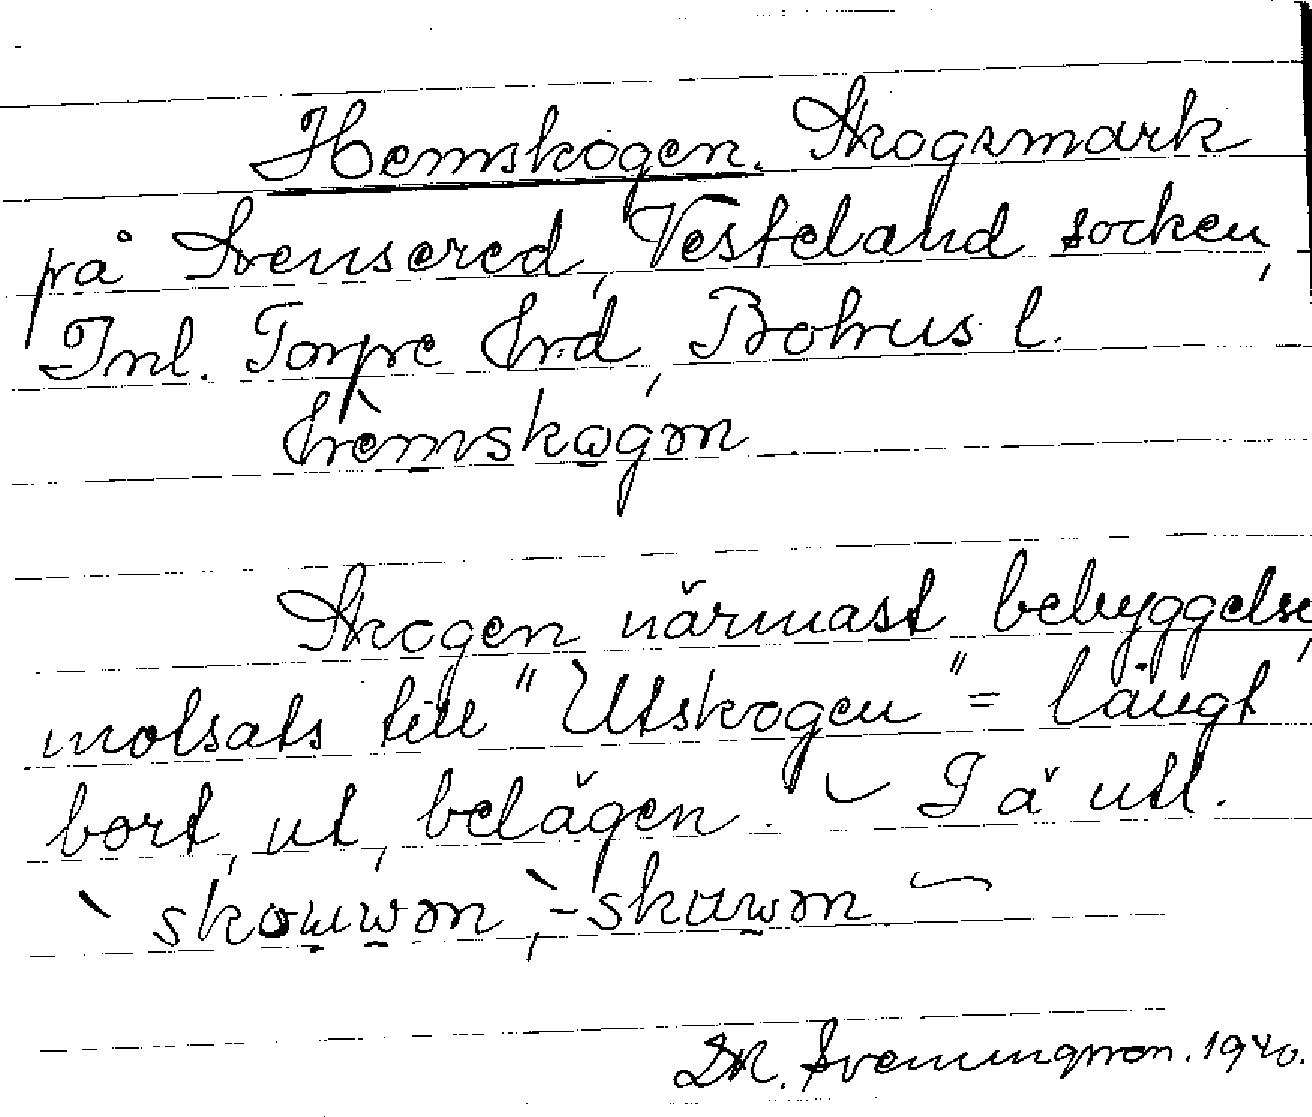 Hemskogen. Skogsmark
på Svensered, Vesteland socken,
Inl. Torpe hrd, Bohus l.
hèmskogən
Skogen närmast bebyggelse,
motsats till "Utskogen" = längt
bort, ut, belägen. Ä utt.
skouwən, -skuwən
D.K. Svenungsson. 1940.